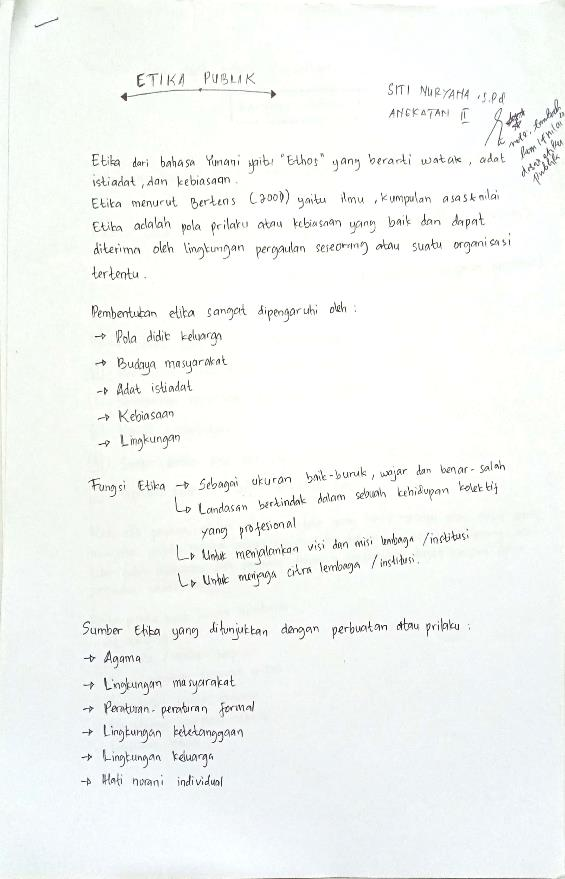 ETIKA PUBLIK
SITI NURYANA, S.Pd
ANGKATAN II
Etika dari bahasa Yunani yaitu "Ethos" yang berarti watak, adat
istiadat, dan kebiasaan.
Etika menurut Bertens (2000) yaitu ilmu, kumpulan asas & nilai
Etika adalah pola prilaku atau kebiasaan yang baik dan dapat
diterima oleh lingkungan pergaulan seseorang atau suatu organisasi
tertentu.
Pembentukan etika sangat dipengaruhi oleh :
→ Pola didik keluarga
→ Budaya masyarakat
→ Adat istiadat
→ Kebiasaan
→ Lingkungan
Fungsi Etika → Sebagai ukuran baik-buruk, wajar dan benar-salah
↳ Landasan bertindak dalam sebuah kehidupan kolektif
yang profesional
↳ Untuk menjalankan visi dan misi lembaga /institusi
↳ Untuk menjaga citra lembaga /institusi.
Sumber Etika yang ditunjukkan dengan perbuatan atau prilaku :
→ Agama
→ Lingkungan masyarakat
→ Peraturan-peraturan formal
→ Lingkungan ketetanggaan
→ Lingkungan keluarga
→ Hati nurani individual